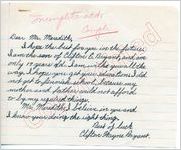 Dear Mr. Meredith,
I hope the best for you in the future.
I am the son of Clifton E. Bryant, and am
only 17 years old. I am in the
way. I hope you get your education. I did
not get to finish school, because my
mother and father could not afford
to buy my needed things.
Mr. Meredith, I believe in you and
I know your doing the right thing.
Best of luck
Clifton Wayne Bryant.